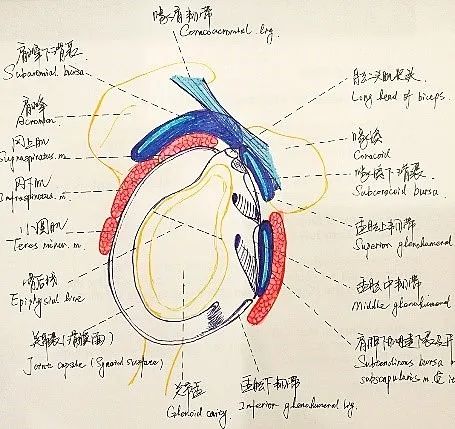 喙肩韧带
Coracoacromial lig.
肩峰下滑囊
Subacromial bursa
肱二头肌长头
Long head of biceps.
肩峰
Acromion
喙突
Coracoid
冈上肌
Supraspinatus.m.
喙突下滑囊
Subcoracoid bursa
冈下肌
Infraspinatus.m.
盂肱上韧带
Superior glenohumeral
小圆肌
Teres minor.m.
盂肱中韧带
Middle glenohumeral
骨骺线
Epiphysial line
肩胛下肌
Subtendinous bursa
subscapularis m.
关节囊(滑膜面)
Joint capsule (Synovial surface)
关节盂
Glenoid cavity.
盂肱下韧带
Inferior glenohumeral lig.